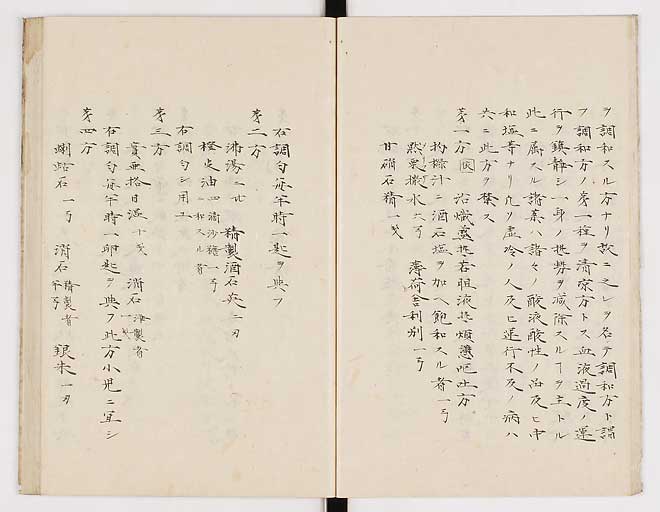 ヲ調和スル方ナリ故ニ之レヲ名テ調和方ト謂
フ調和方ノ第一種ヲ清凉方トス血液過度ノ運
行ヲ鎮静シ一身ノ温勢ヲ減除スルヿヲ主トル
此ニ属スル諸薬ハ諸々ノ酸液酸性ノ品及ヒ中
和塩等ナリ凡ソ虚冷ノ人及ヒ運行不及ノ病ハ
共ニ此方ヲ禁ス
第一方 治熾盛熱若胆液熱煩懣嘔吐方
枸櫞汁ニ酒石塩ヲ加ヘ飽和スル者一弓
然栗撒水六弓 薄荷舎利別一弓
甘硝石精一戔
右調匀毎半時一匙ヲ與フ
第二方
沸湯二比 精製酒石英二刃
橙皮油四滴沙糖一弓ニ和スル者
右調匀シ用ユ
第三方
實芰荅日湿十戔 消石精製者一戔
右調匀毎半時一卵匙ヲ與フ此方小児ニ宜シ
第四方
蜊蛄石一弓 消石精製者半弓 銀朱一刃